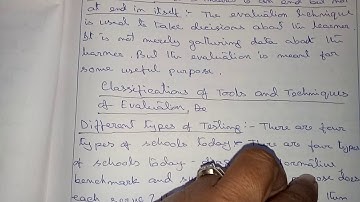 at end in itself :- The evaluation technique
is usual to take decisions about the learner
It is not merely gathering data about the
learner. But the evaluation is meant for
some useful purpose.
Classifications of Tools and Techniques
of Evaluation,
Different types of Testing :- There are four
types of schools today There are four types
of schools today -
benchmark and
each serve?